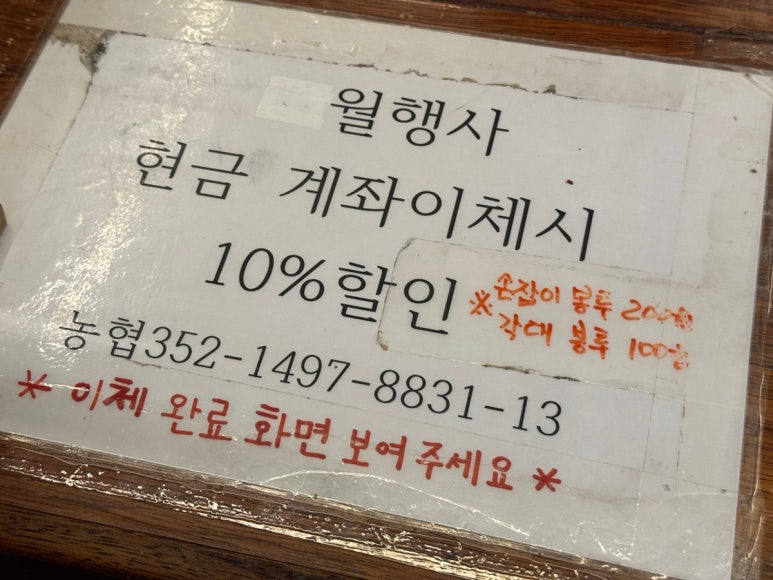 월행사
현금 계좌이체시
10%할인
※ 손잡이 봉투 200원
각대 봉투 100원
농협352-1497-8831-13
* 이체 완료 화면 보여주세요 *